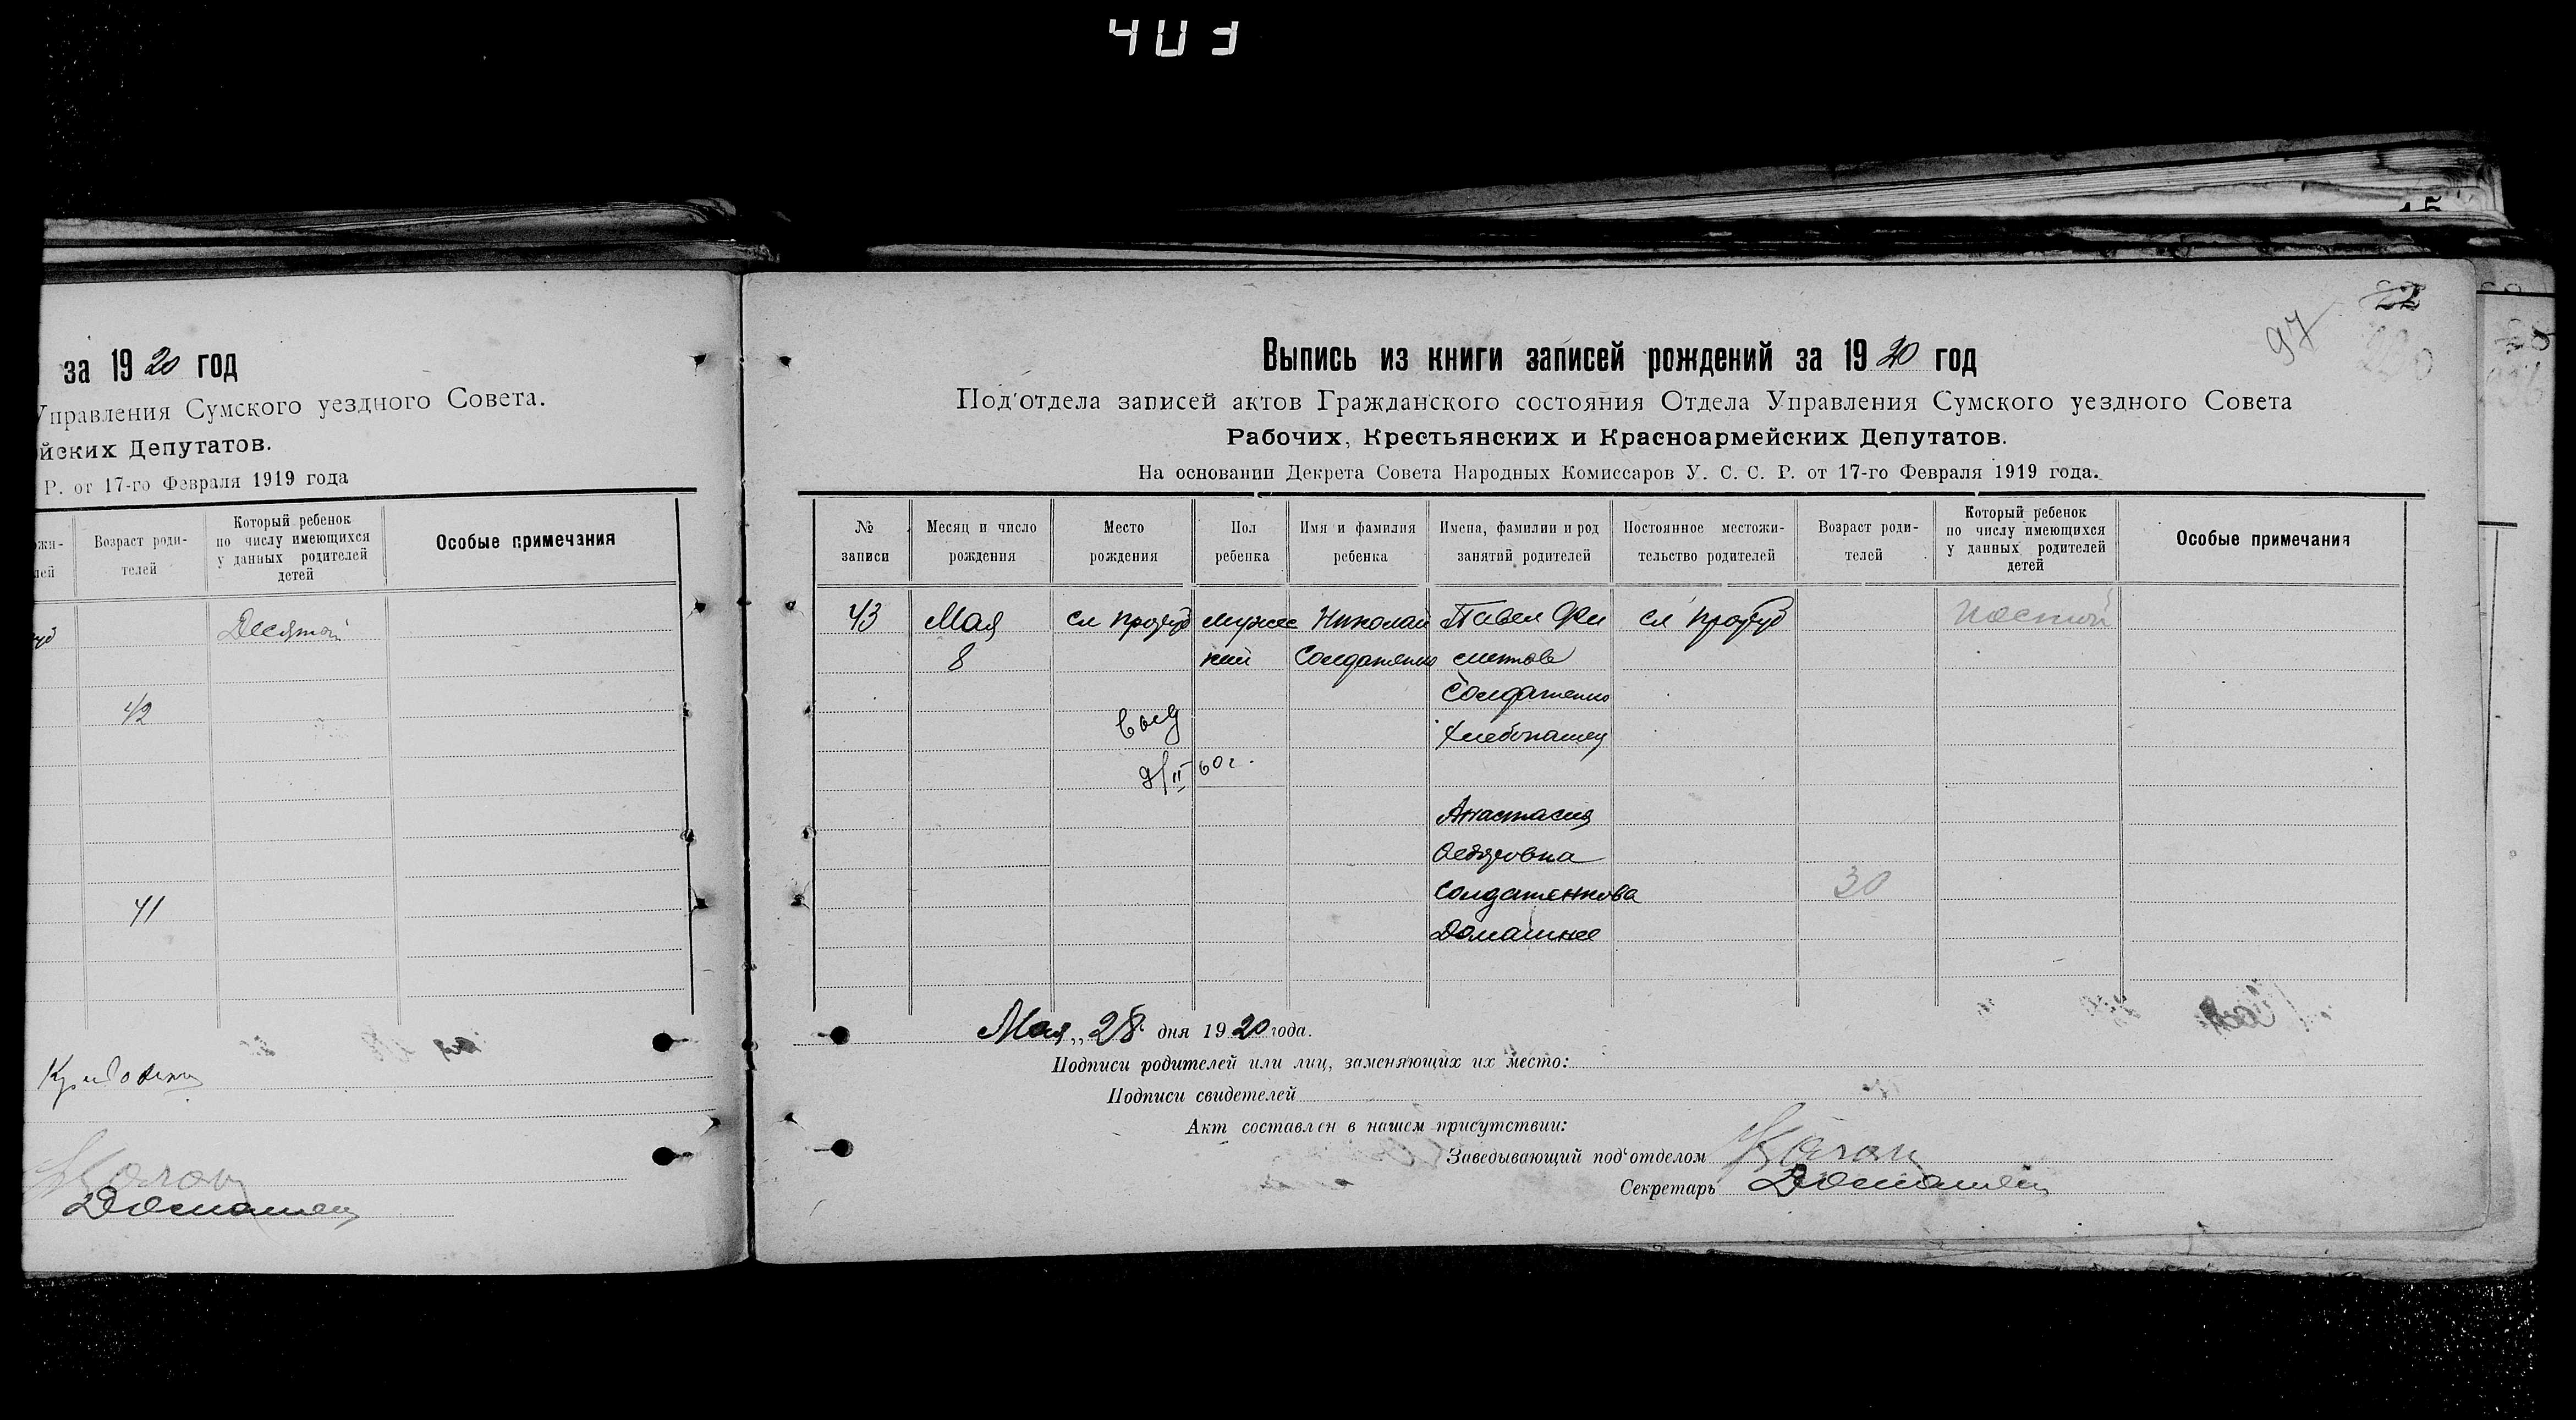 за 1920 год
Управления Сумского уездного Совета.
йских Депутатов.
Р. от 17-го Февраля 1919 года
Возраст роди-
телей
Который ребенок
по числу имеющихся
у данных родителей
детей
Особые примечания
Десятой
42
41
22
97
Выпись из книги записей рождений за 1920 год
Под'отдела записей актов Гражданского состояния Отдела Управления Сумского уездного Совета
Рабочих, Крестьянских и Красноармейских Депутатов.
На основании Декрета Совета Народных Комиссаров У. С. С. Р. от 17-го Февраля 1919 года.
№
записи
Месяц и число
рождения
Место
рождения
Пол
ребенка
Имя и фамилия
ребенка
Имена, фамилии и род
занятий родителей
Постоянное местожи-
тельство родителей
Возраст роди-
телей
Который ребенок
по числу имеющихся
у данных родителей
детей
Особые примечания
43 Мая сл мужес Николай Павел Фи сл
8 кий Солдатенко
Солдатенко
Хлебопашец
9/II 60 г.
Анастасия
Федоровна
Солдатенкова 30
Домашнее
Мая „28" дня 1920 года.
Подписи родителей или лиц, заменяющих их место:
Подписи свидетелей
Акт составлен в нашем присутствии:
Заведывающий под'отделом
Секретарь